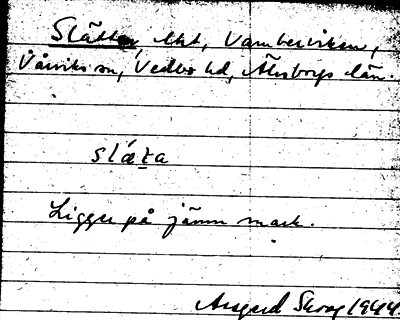 Slätten lht, Vambersviken,
Vårviks sn, Vedbo hd, Älvsborgs län.
slæta
Ligger på jämn mark.
Skog 1944